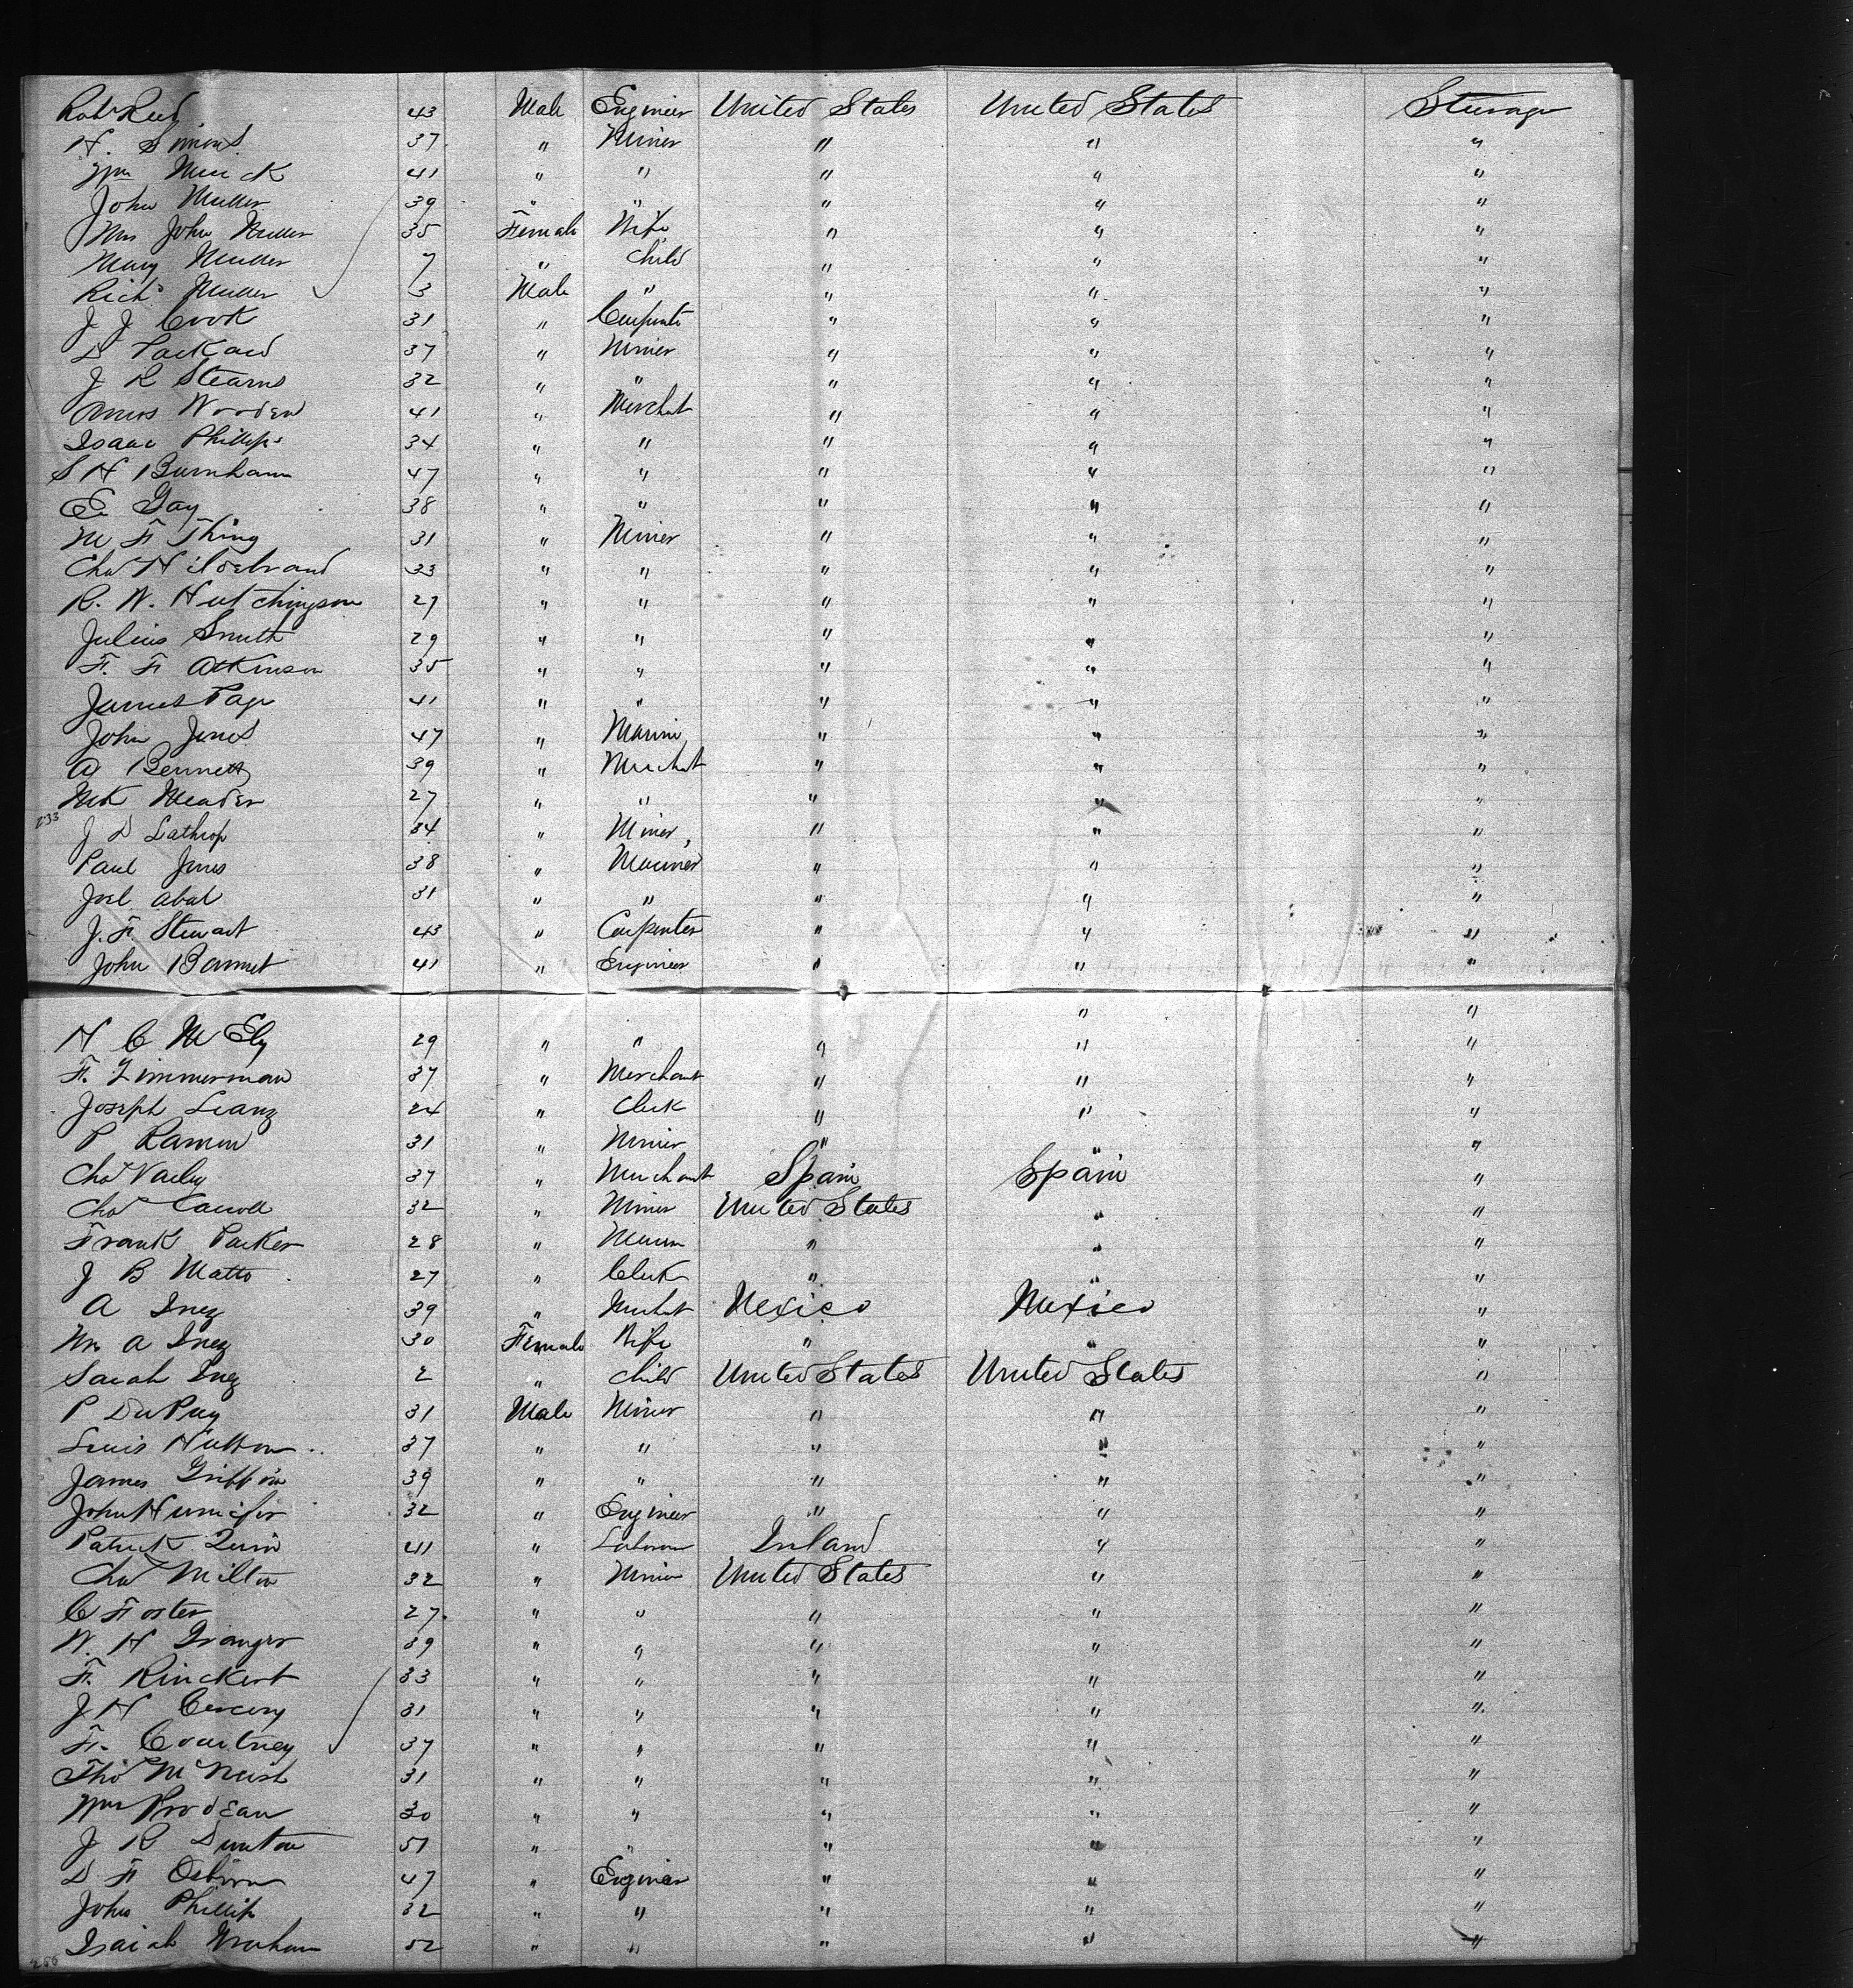 Robt Reed 43 Male Engineer United States United States Steerage
H. Simons 37 " Miner " " "
Wm Muick 41 " " " " "
John Muller 39 " " " " "
Mrs John Muller 35 Female Wife " " "
Mary Muller 7 " Child " " "
Richd Muller 3 Male " " " "
J J Cook 31 " Carpenter " " "
D Packard 37 " Miner " " "
J R Stearns 32 " " " " "
Amos Wooden 41 " Merchat " " "
Isaac Phillips 34 " " " " "
S H Burnham 47 " " " " "
E. Gay 38 " " " " "
M F Thing 31 " Miner " " "
Chas Hildebrand 33 " " " " "
R. W. Hutchingson 27 " " " " "
Julius Smith 29 " " " " "
F. F Atkinson 35 " " " " "
James Page 41 " " " " "
John Jones 47 " Marine " " "
A Bennett 39 " Merchat " " "
Mk Meader 27 " " " " "
233
J D Lathrop 34 " Miner " " "
Paul Jones 38 " Mariner " " "
Joel Abal 31 " " " " "
J. F. Stewart 43 " Carpenter " " "
John Bammet 41 " Engineer " " "
" "
H C McEly 29 " " " " "
F. Zimmerman 37 " Merchant " " "
Joseph Leanz 24 " Clerk " " "
P Ramon 31 " Miner " " "
Chas Varley 37 " Merchant Spain Spain "
Chas Carroll 32 " Miner United States " "
Frank Parker 28 " Marin " " "
J B Matto 27 " Clerk " " "
A Inez 39 " Merchat Mexico Mexico "
Mrs A Inez 30 Female Wife " " "
Sarah Inez 2 " Child United States United States "
P DuPuy 31 Male Miner " " "
Louis Hutton 37 " " " " "
James Griffin 39 " " " " "
John Hunicfir 32 " Engineer " " "
Patrick Quin 41 " Laborer Ireland " "
Chas Milton 32 " Miner United States " "
C Foster 27 " " " " "
W. H Granger 39 " " " " "
F. Rinckert 33 " " " " "
J H 31 " " " " "
F. Courtney 37 " " " " "
Thos McNeish 31 " " " " "
Wm Prodeau 30 " " " " "
J R Dunton 51 " " " " "
D F Osborn 47 " Engineer " " "
John Phillip 32 " " " " "
Isaiah Graham 52 " " " " "
256